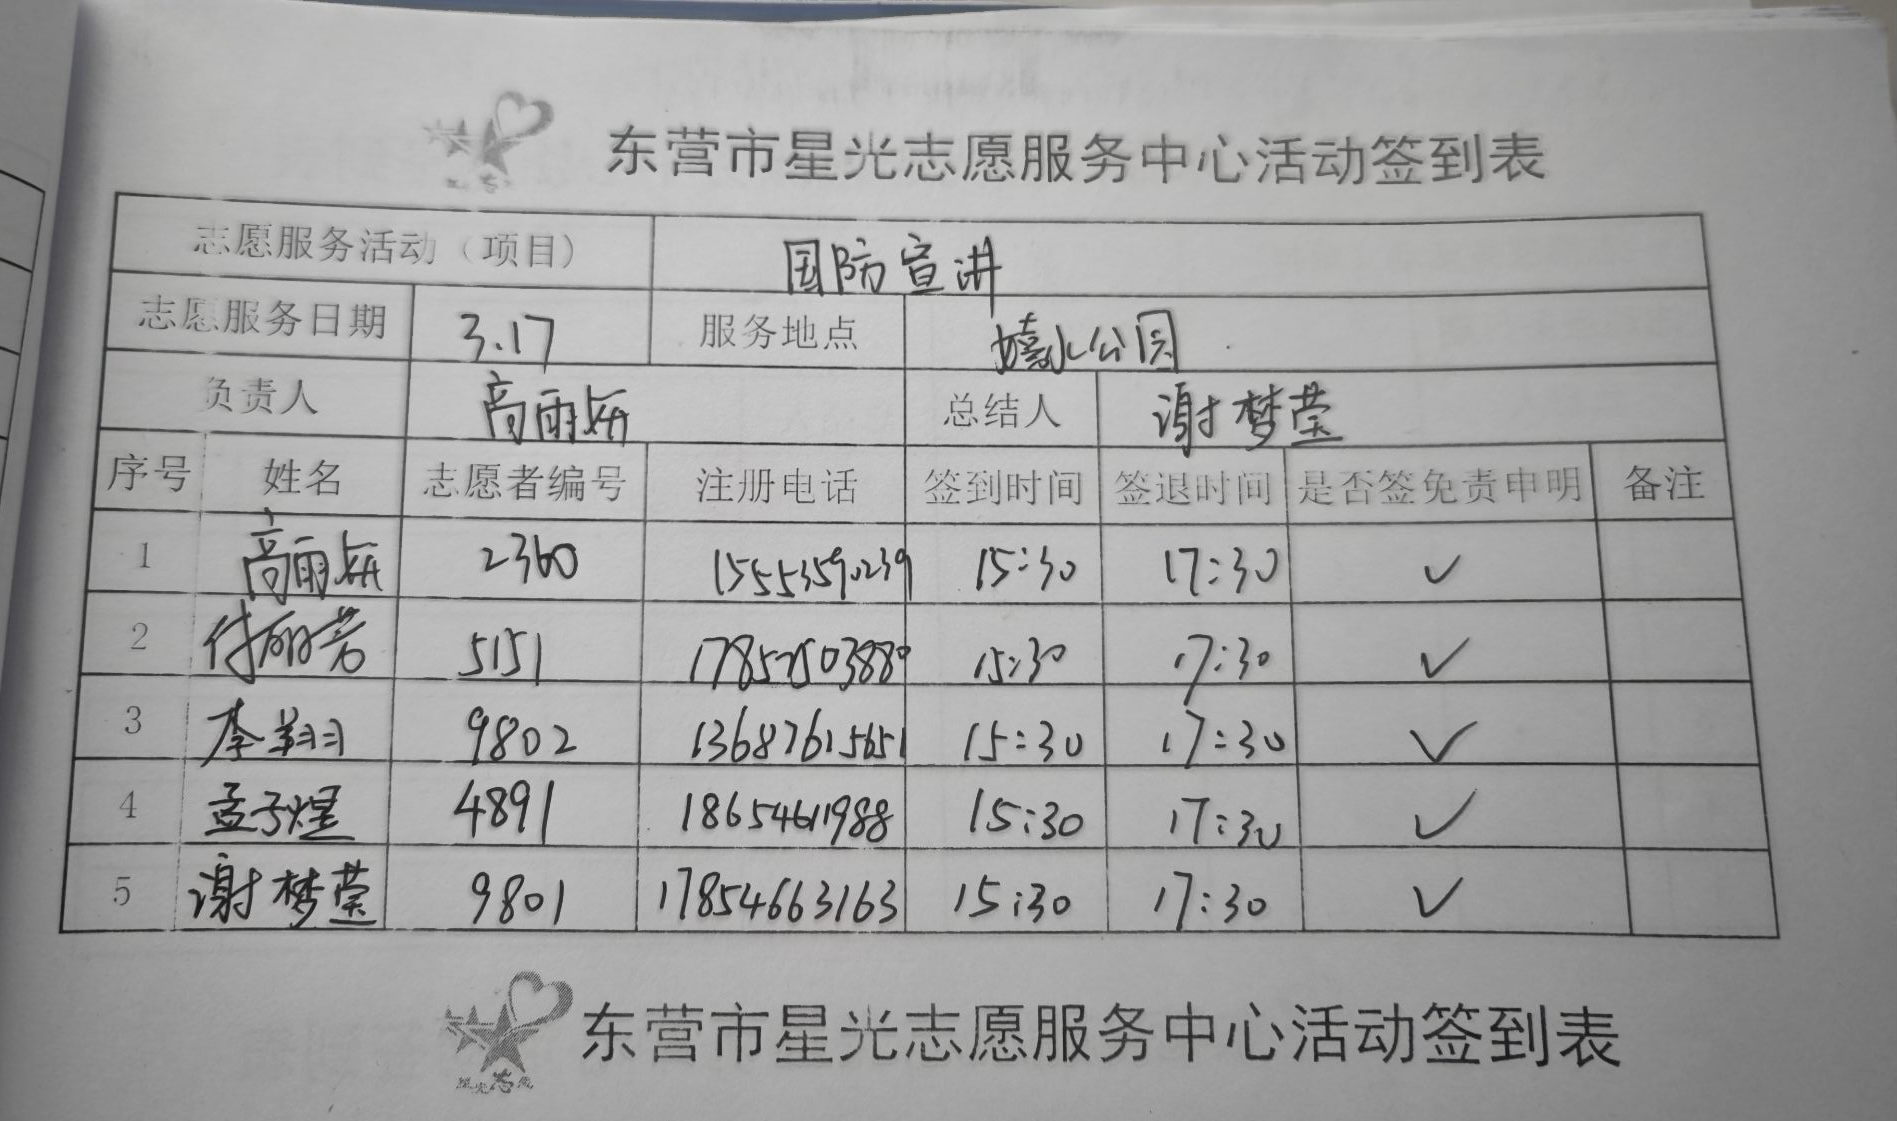 东营市星光志愿服务中心活动签到表
志愿服务活动（项目） 国防宣讲
志愿服务日期 3.17 服务地点 嬉水公园
负责人 高雨妍 总结人 谢梦莹
序号 姓名 志愿者编号 注册电话 签到时间 签退时间 是否签免责申明 备注
1 高雨妍 2360 15553590239 15:30 17:30 ✓
2 付丽芳 5151 17852503880 15:30 17:30 ✓
3 李翔羽 9802 13687615651 15:30 17:30 ✓
4 孟子煜 4891 18654611988 15:30 17:30 ✓
5 谢梦莹 9801 17854663163 15:30 17:30 ✓
东营市星光志愿服务中心活动签到表